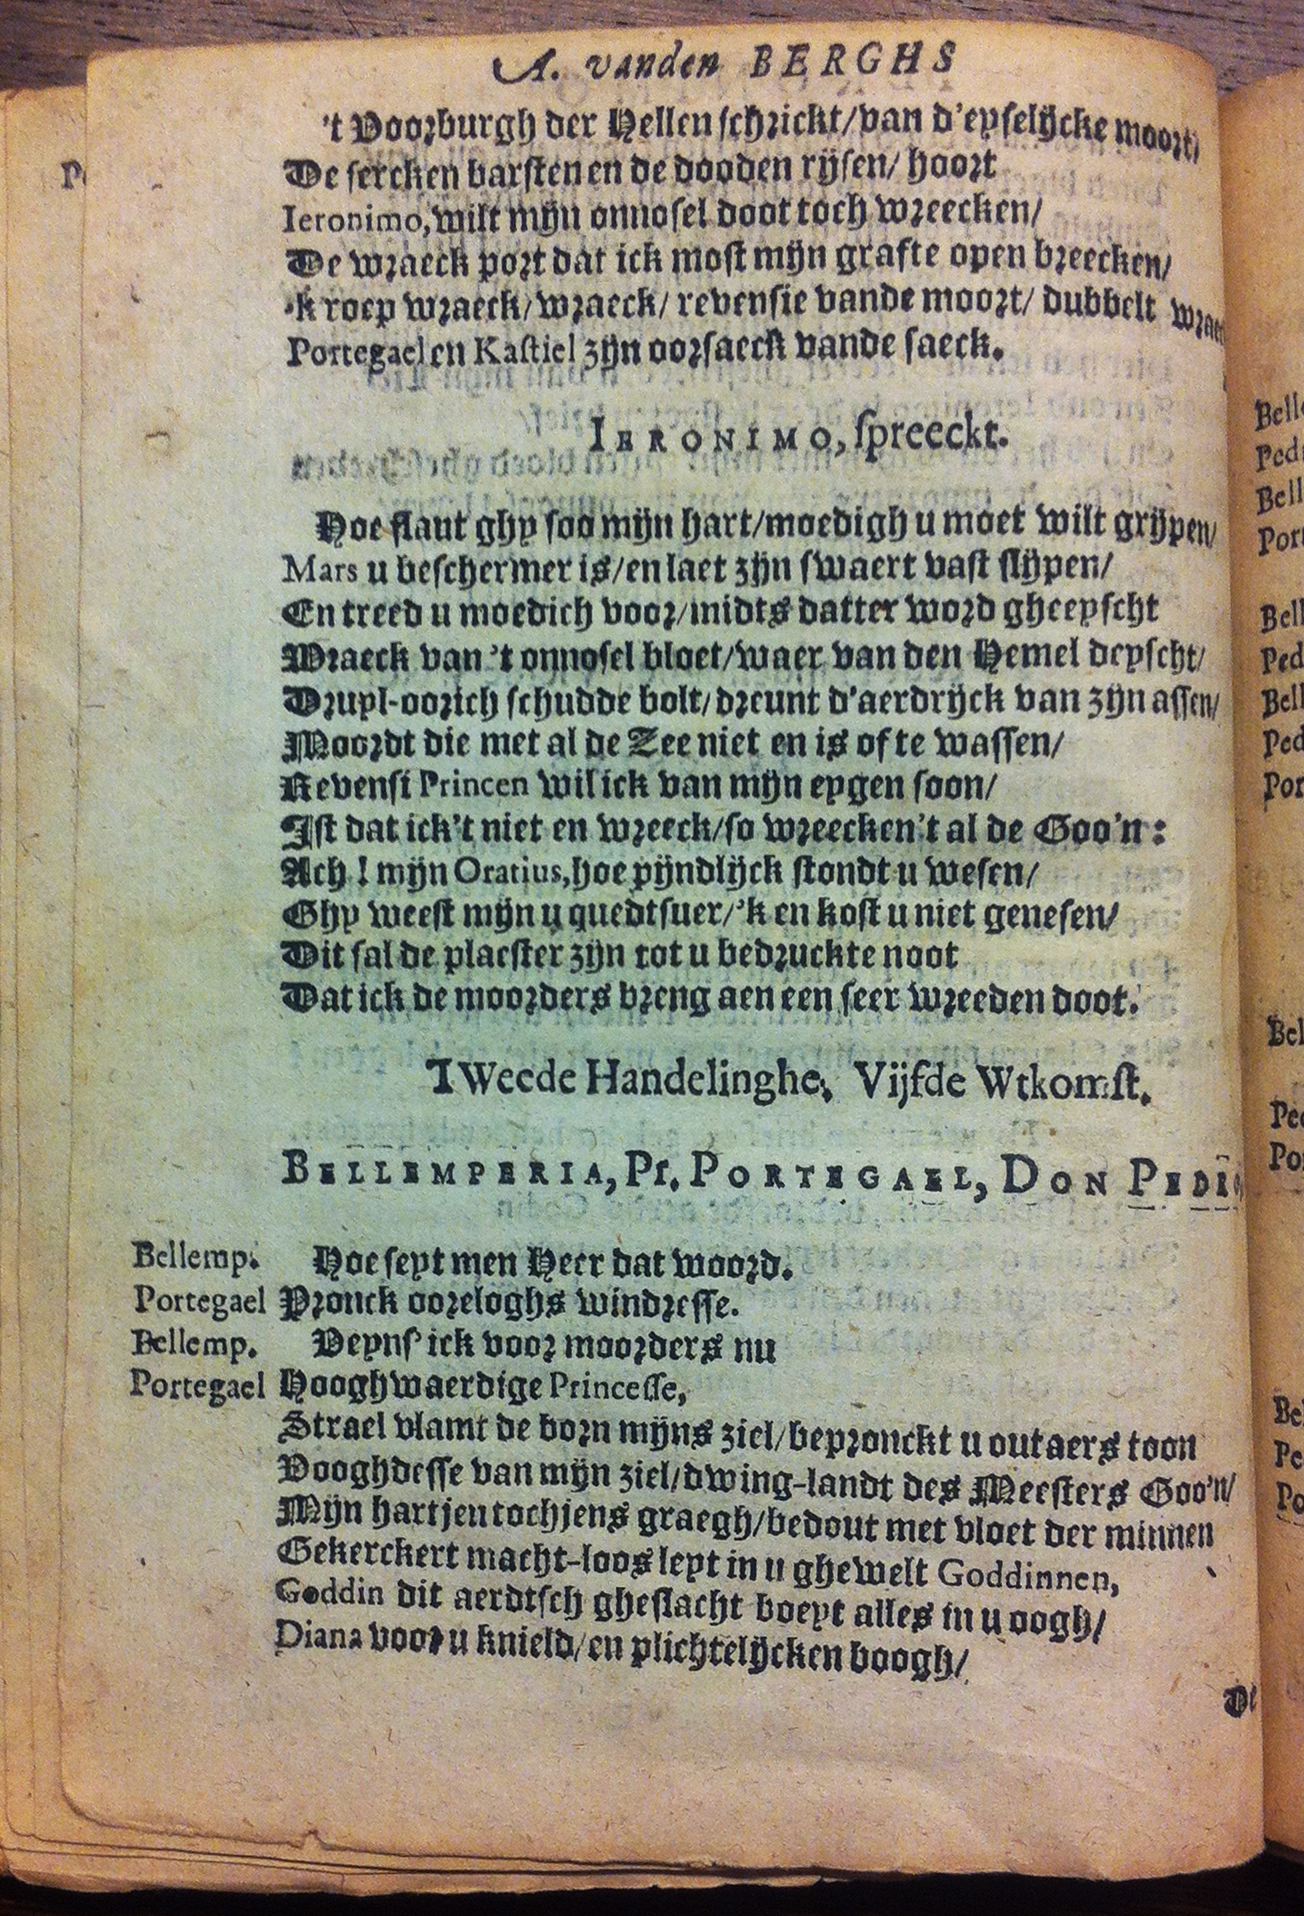 A. vanden BERGHS
't Voorburgh der Hellen schrickt/van d'eyselijcke moort/
De sercken barsten en de dooden rijsen/ hoort
Ieronimo, wilt mijn onnosel doot toch wreecken/
De wraeck port dat ick most mijn grafte open breecken/
'k roep wraeck/wraeck/ revensie vande moort/ dubbelt
Portegael en Kastiel zijn oorsaeck vande saeck.
IERONIMO, spreeckt.
Hoe flaut ghy soo mijn hart/moedigh u moet wilt grijpen/
Mars u beschermer is/en laet zijn swaert vast slijpen/
En treed u moedich voor/midts datter word gheeyscht
Wraeck van 't onnosel bloet/waer van den Hemel deyscht/
Druyl-oorich schudde bolt/dreunt d'aerdrijck van zijn assen/
Moordt die met al de Zee niet en is of te wassen/
Revensi Princen wil ick van mijn eygen soon/
Ist dat ick't niet en wreeck/so wreecken't al de Goo'n:
Ach! mijn Oratius, hoe pijndlijck stondt u wesen/
Ghy weest mijn u quedtsuer/'k en kost u niet genesen/
Dit sal de plaester zijn tot u bedruckte noot
Dat ick de moorders breng aen een seer wreeden doot.
Tweede Handelinghe, Vijfde Wtkomst.
BELLEMPERIA, Pr. PORTEGAEL, DON PEDRO,
Bellemp. Hoe seyt men Heer dat woord.
Portegael Pronck ooreloghs windresse.
Bellemp. Veyns' ick voor moorders nu
Portegael Hooghwaerdige Princesse,
Strael vlamt de born mijns ziel/bepronckt u outaers toon
Vooghdesse van mijn ziel/dwing-landt des Meesters Goo'n/
Mijn hartjen tochjens graegh/bedout met vloet der minnen
Gekerckert macht-loos leyt in u ghewelt Goddinnen,
Goddin dit aerdtsch gheslacht boeyt alles in u oogh/
Diana voor u knield/en plichtelijcken boogh/
De